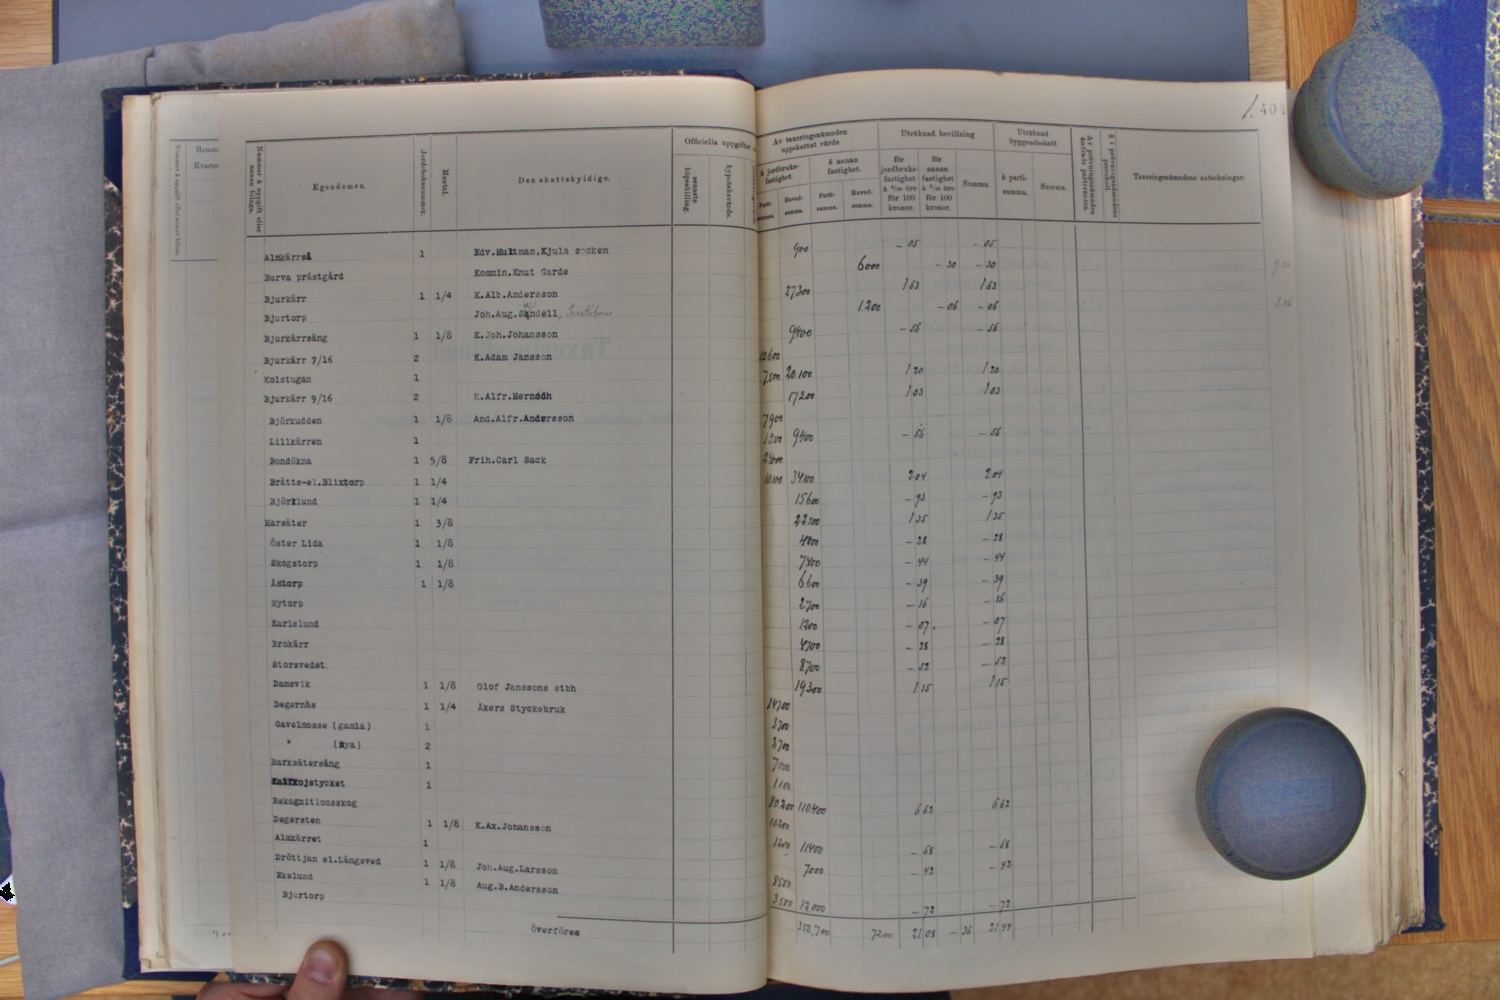 1. 401
Nummer å uppgift eller annan bilaga.
Egendomen.
Jordeboksnummer.
Mantal.
Den skattskyldige.
Officiella uppgifter
senaste köpeskilling.
hypoteksvärde.
Av taxeringsnämnden uppskattat värde
å jordbruksfastighet.
å annan fastighet.
Parti-summa.
Huvud-summa.
Parti-summa.
Huvud-summa.
Uträknad bevillning
för jordbruksfastighet
för annan fastighet
för 100 kronor.
för 100 kronor.
Summa.
Uträknad byggnadsskatt
å partisumma.
Summa.
Taxeringsnämndens anteckningar.
Almkärrså 1 Edv.Hultman,Kjula socken 900 - 05 - 05
Barva prästgård Kommin.Knut Garde 6000 - 30 - 30
Bjurkärr 1 1/4 K.Alb.Andersson 27300 1 63 1 63
Bjurtorp Joh.Aug. 1200 - 06 - 06
Bjurkärrsäng 1 1/8 K.Joh.Johansson 9400 - 56 - 56
Bjurkärr 7/16 2 K.Adam Jansson 12600
Kolstugan 1 7500 20.100 1 20 1 20
Bjurkärr 9/16 2 K.Alfr.Hernödh 17200 1 03 1 03
Björkudden 1 1/8 And.Alfr.Andersson 7900
Lillkärren 1 1500 9400 - 56 - 56
Bondökna 1 5/8 Frih.Carl Sack 24000
Bråtts-el.Blixtorp 1 1/4 10100 34100 2 04 2 04
Björklund 1 1/4 15600 - 93 - 93
Harsäter 1 3/8 22500 1 35 1 35
Öster Lida 1 1/8 4800 - 28 - 28
Skogstorp 1 1/8 7400 - 44 - 44
Åstorp 1 1/8 6600 - 39 - 39
Nytorp 2700 - 16 - 16
Karlslund 1200 - 07 - 07
Brokärr 4700 - 28 - 28
Storsvedet 8700 - 52 - 52
Dansvik 1 1/8 Olof Janssons stbh 19300 1 15 1 15
Degernäs 1 1/4 Åkers Styckebruk 14700
Gavelmosse (gamla) 1 3700
" (Nya) 2 3700
Barksätersäng 1 7000
1 1100
Rekognitionsskog 80200 110400 6 62 6 62
Degersten 1 1/8 K.Ax.Johansson 10200
Almkärret 1 1200 11400 - 68 - 68
Dröttjan el.Långsved 1 1/8 Joh.Aug.Larsson 7000 - 42 - 42
Ekelund 1 1/8 Aug.B.Andersson 8500
Bjurtorp 3500 12,000 - 72 - 72
Överföres 358,700 7200 21 08 - 36 21 44